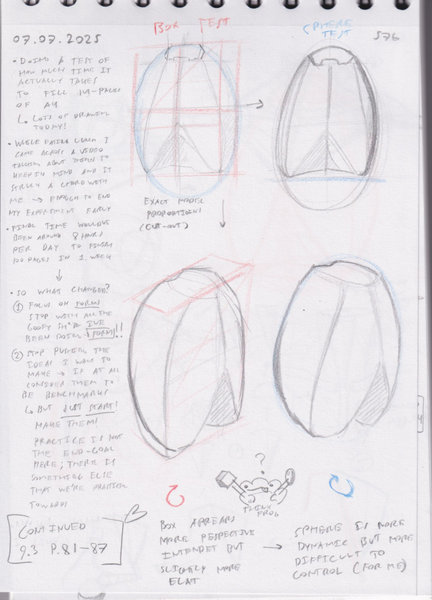 07.07.2025
BOX TEST
SPHERE
TEST
576
• DOING A TEST OF
HOW MUCH TIME IT
ACTUALLY TAKES
TO FILL 100-PAGES
OF A4
↳ LOTS OF DRAWING
TODAY!
• WHILE EATING LUNCH I
CAME ACROSS A VIDEO
TALKING ABOUT THINGS TO
KEEP IN MIND AND IT
STRUCK A CHORD WITH
ME → ENOUGH TO END
MY EXPERIMENT EARLY
• FINAL TIME WOULD'VE
BEEN AROUND 8 HOURS
PER DAY TO FINISH
100 PAGES IN 1 WEEK
↓
• SO WHAT CHANGED?
① FOCUS ON FORM
STOP WITH ALL THE
GOOFY SH*T I'VE
BEEN DOING FORM!!
② STOP PUSHING THE
IDEAS I WANT TO
MAKE → IF AT ALL
CONSIDER THEM TO
BE BENCHMARKS
↳ BUT JUST START!
MAKE THEM!
PRACTICE IS NOT
THE END-GOAL
HERE, THERE IS
SOMETHING ELSE
THAT WE'RE
TOWARDS
CONTINUED
9.3 P.81-87
EXACT MODEL
PROPORTIONS
(CUT-OUT)
?
FROG
BOX APPEARS
MORE PERSPECTIVE
BUT
SLIGHTLY MORE
FLAT
→
SPHERE IS MORE
DYNAMIC BUT MORE
DIFFICULT TO
CONTROL (FOR ME)